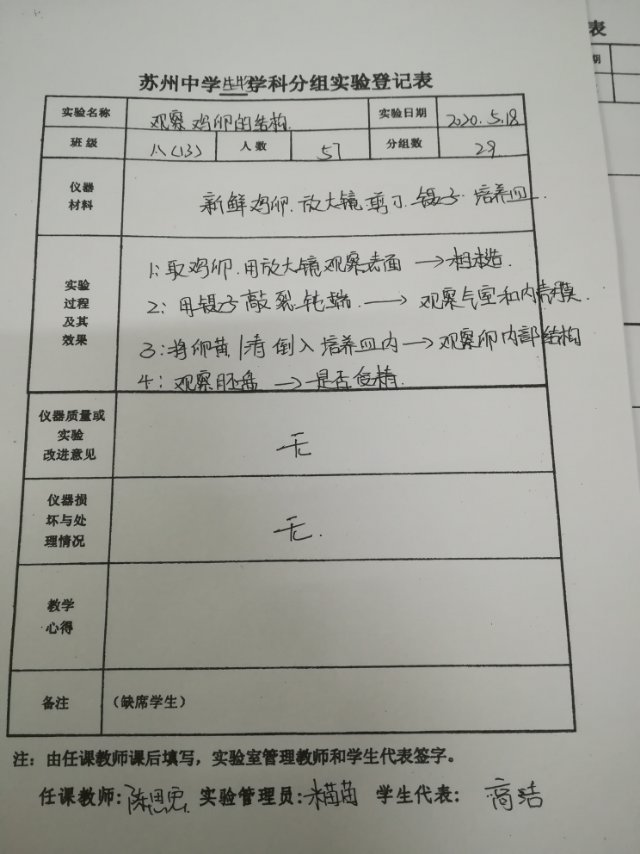 苏州中学生物学科分组实验登记表
实验名称 观察鸡卵的结构. 实验日期 2020.5.18
班级 八(13) 人数 57 分组数 29
仪器材料 新鲜鸡卵.放大镜 剪刀 镊子 培养皿.
实验过程及其效果
1:取鸡卵.用放大镜观察表面 → 粗糙.
2:用镊子敲裂钝端. → 观察气室和内壳膜.
3:将卵黄/清倒入培养皿内→观察卵内部结构
4:观察胚盘 → 是否受精.
仪器质量或实验改进意见 无
仪器损坏与处理情况 无.
教学心得
备注 (缺席学生)
注：由任课教师课后填写，实验室管理教师和学生代表签字。
任课教师: 陈思 实验管理员: 学生代表: 高洁
表
期